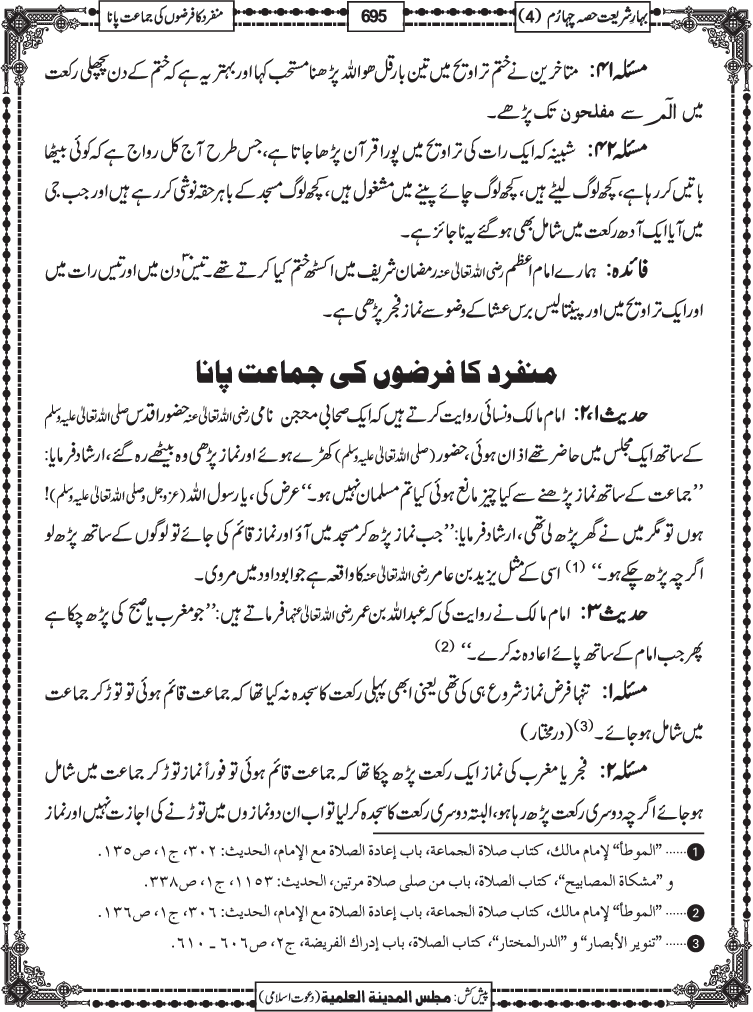 بہارِ شریعت حصہ چہارم (4)
695
منفرد کا فرضوں کی جماعت پانا
مسئلہ ۴۱: متاخرین نے ختم تراویح میں تین بار قل ھو اللہ پڑھنا مستحب کہا اور بہتر یہ ہے کہ ختم کے دن پچھلی رکعت
میں الٓمّٓ سے مفلحون تک پڑھے۔
مسئلہ ۴۲: شبینہ کہ ایک رات کی تراویح میں پورا قرآن پڑھا جاتا ہے، جس طرح آج کل رواج ہے کہ کوئی بیٹھا
باتیں کر رہا ہے، کچھ لوگ لیٹے ہیں، کچھ لوگ چائے پینے میں مشغول ہیں، کچھ لوگ مسجد کے باہر حقہ نوشی کر رہے ہیں اور جب جی
میں آیا ایک آدھ رکعت میں شامل بھی ہو گئے یہ ناجائز ہے۔
فائدہ: ہمارے امام اعظم رضی اللہ تعالیٰ عنہ رمضان شریف میں اکسٹھ ختم کیا کرتے تھے۔ تیس۳۰ دن میں اور تیس رات میں
اور ایک تراویح میں اور پینتالیس برس عشا کے وضو سے نماز فجر پڑھی ہے۔
منفرد کا فرضوں کی جماعت پانا
حدیث ۲،۱: امام مالک و نسائی روایت کرتے ہیں کہ ایک صحابی محجن نامی رضی اللہ تعالیٰ عنہ حضور اقدس صلی اللہ تعالیٰ علیہ وسلم
کے ساتھ ایک مجلس میں حاضر تھے اذان ہوئی، حضور (صلی اللہ تعالیٰ علیہ وسلم) کھڑے ہوئے اور نماز پڑھی وہ بیٹھے رہ گئے، ارشاد فرمایا:
’’جماعت کے ساتھ نماز پڑھنے سے کیا چیز مانع ہوئی کیا تم مسلمان نہیں ہو۔‘‘ عرض کی، یا رسول اللہ (عزوجل وصلی اللہ تعالیٰ علیہ وسلم)!
ہوں تو مگر میں نے گھر پڑھ لی تھی، ارشاد فرمایا: ’’جب نماز پڑھ کر مسجد میں آؤ اور نماز قائم کی جائے تو لوگوں کے ساتھ پڑھ لو
اگرچہ پڑھ چکے ہو۔‘‘ (1) اسی کے مثل یزید بن عامر رضی اللہ تعالیٰ عنہ کا واقعہ ہے جو ابو داود میں مروی۔
حدیث ۳: امام مالک نے روایت کی کہ عبداللہ بن عمر رضی اللہ تعالیٰ عنہما فرماتے ہیں: ’’جو مغرب یا صبح کی پڑھ چکا ہے
پھر جب امام کے ساتھ پائے اعادہ نہ کرے۔‘‘ (2)
مسئلہ ۱: تنہا فرض نماز شروع ہی کی تھی یعنی ابھی پہلی رکعت کا سجدہ نہ کیا تھا کہ جماعت قائم ہوئی تو توڑ کر جماعت
میں شامل ہو جائے۔ (3) (درمختار)
مسئلہ ۲: فجر یا مغرب کی نماز ایک رکعت پڑھ چکا تھا کہ جماعت قائم ہوئی تو فوراً نماز توڑ کر جماعت میں شامل
ہو جائے اگرچہ دوسری رکعت پڑھ رہا ہو، البتہ دوسری رکعت کا سجدہ کر لیا تو اب ان دو نمازوں میں توڑنے کی اجازت نہیں اور نماز
1 ...... ”الموطأ“ لإمام مالك، كتاب صلاة الجماعة، باب إعادة الصلاة مع الإمام، الحديث: ٣٠٢، ج١، ص١٣٥.
و ”مشكاة المصابيح“، كتاب الصلاة، باب من صلى صلاة مرتين، الحديث: ١١٥٣، ج١، ص٣٣٨.
2 ...... ”الموطأ“ لإمام مالك، كتاب صلاة الجماعة، باب إعادة الصلاة مع الإمام، الحديث: ٣٠٦، ج١، ص١٣٦.
3 ...... ”تنوير الأبصار“ و ”الدرالمختار“، كتاب الصلاة، باب إدراك الفريضة، ج٢، ص٦٠٦ ـ ٦١٠.
پیش کش: مجلس المدینة العلمیة (دعوت اسلامی)